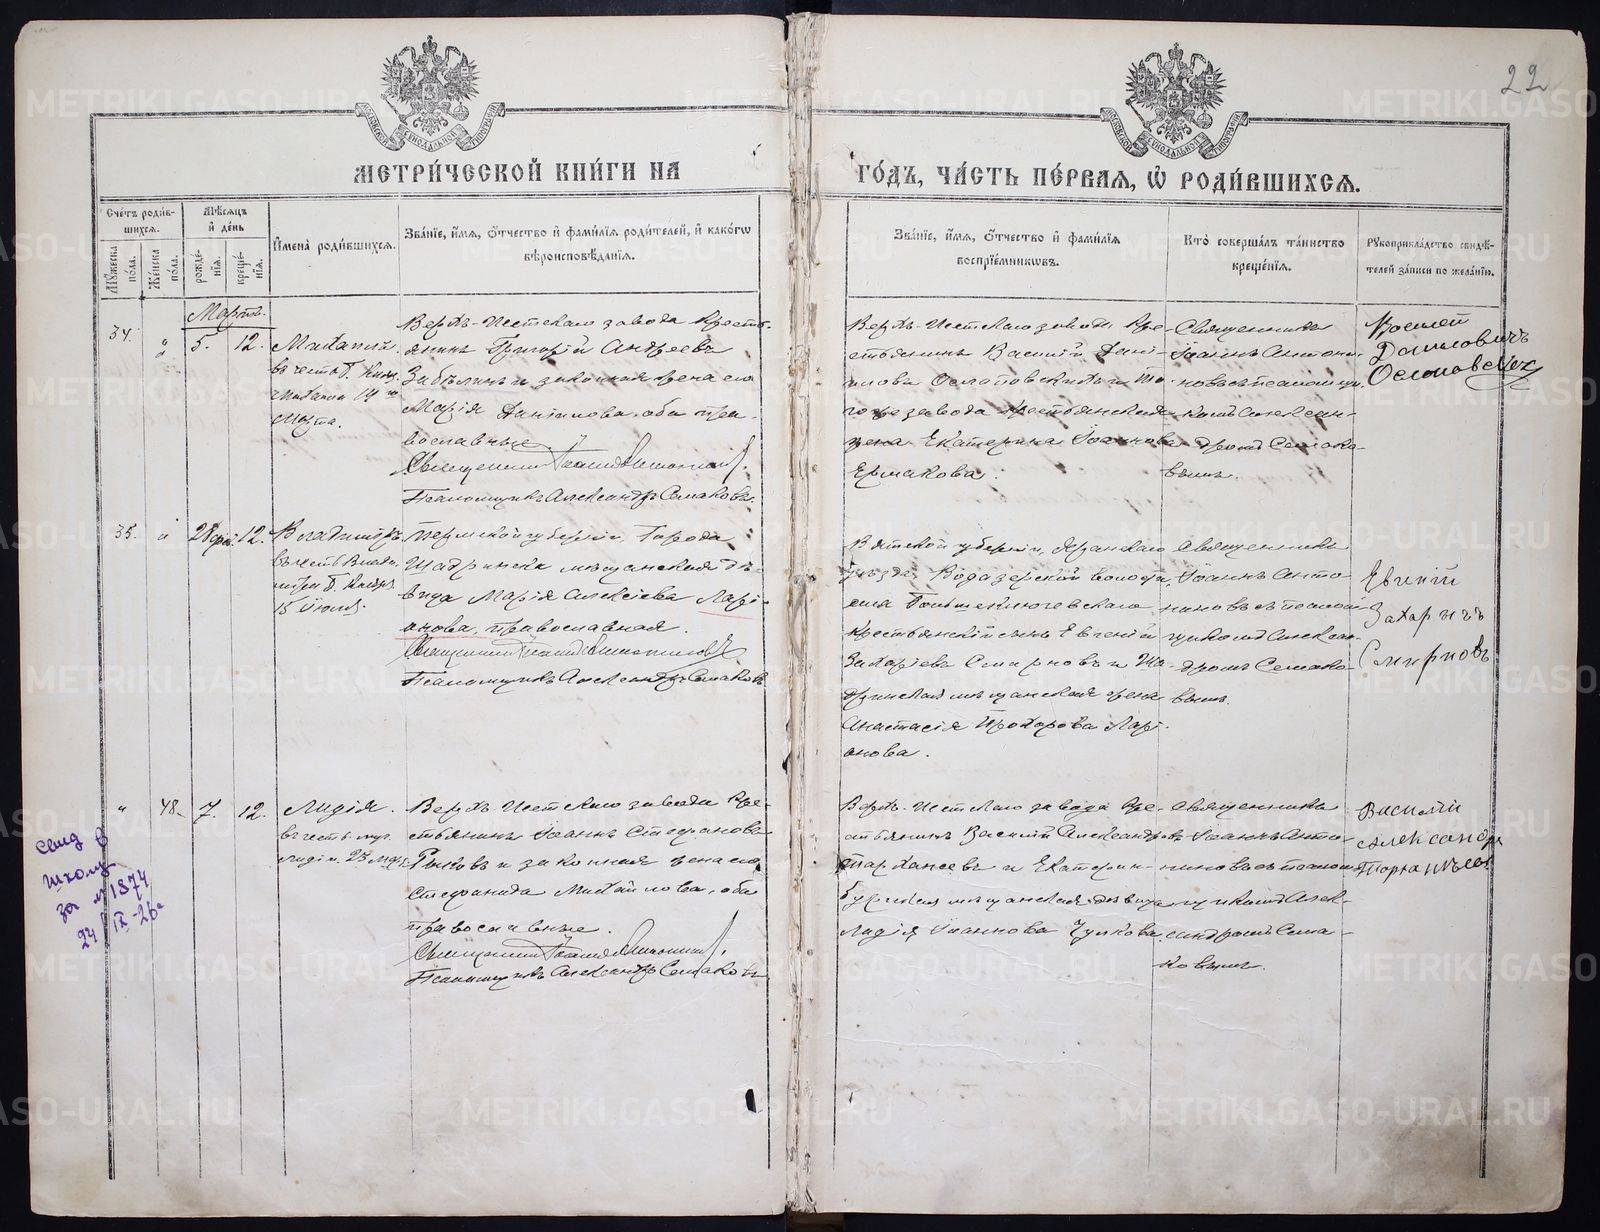 22
МЕТРИ́ЧЕСКОЙ КНИ́ГИ НА
ГО́ДЪ, ЧА́СТЬ ПЕ́РВАЯ, Ѽ РОДИ́ВШИХСЯ.
Сче́тъ роди́в-
шихся.
Мѣ́сяцъ
и де́нь
Му́жеска по́ла.
Же́нска по́ла.
рожде́-
нїя.
креще́-
нїя.
И҆мена̀ роди́вшихся.
Зва́нїе, и҆́мя, ѻ҆́тчество и҆ фами́лїя роди́телей, и҆ како́гѡ
вѣроисповѣ́данїя.
Зва́нїе, и҆́мя, ѻ҆́тчество и҆ фами́лїя
воспрїе́мниковъ.
Кто̀ соверша́лъ та́инство
креще́нїя.
Рꙋкоприкла́дство свидѣ́-
телей за́писи по жела́нїю.
Мартъ.
34.
5.
12.
Михаилъ
въ честь Б. Княз.
Михаила 14 го
Верхъ-Исетскаго завода кресть-
янинъ Григорій Андреевъ
Забѣлинъ и законная жена его
Марія Даніилова, оба пра-
вославные.
Священникъ Іоаннъ Антониновъ.
Псаломщикъ Александръ Семаковъ.
Верхъ-Исетскаго завода кре-
стьянинъ Василій Дані-
иловъ и то-
гоже завода крестьянская
жена Екатерина Іоаннова
Ермакова.
Священникъ
Іоаннъ Антони-
новъ съ псаломщи-
комъ Алексан-
дромъ Семако-
вымъ.
Даниловичъ
35.
28 фев.
12.
Владиміръ
въ честь Влади-
міра Б. Князя
15 Іюля.
Пермской губерніи, Города
Шадринска мѣщанская дѣ-
вица Марія Алексіева Лар-
іонова, православная.
Священникъ Іоаннъ Антониновъ
Псаломщикъ Александръ Семаковъ
Вятской губерніи, Яранскаго
уѣзда, Водозерской волости,
села
крестьянскій сынъ Евгеній
Захаріевъ Смирновъ и Ша-
дринская мѣщанская жена
Анастасія Прохорова Лар-
іонова.
Священникъ
Іоаннъ Анто-
ниновъ съ псалом-
щикомъ Алексан-
дромъ Семако-
вымъ.
Евгній
Захарычъ
Смирновъ
48.
7.
12.
Лидія.
въ честь муч.
Лидіи. 23 Мар.
Верхъ-Исетскаго завода кре-
стьянинъ Іоаннъ Стефановъ
и законная жена его
Стефанида Михайлова, оба
православные.
Священникъ Іоаннъ Антониновъ.
Псаломщикъ Александръ Семаковъ
Верхъ-Исетскаго завода кре-
стьянинъ Василій Александровъ
Тарханѣевъ и Екатерин-
бургская мѣщанская дѣвица
Лидія Іоаннова Чулкова.
Священникъ
Іоаннъ Анто-
ниновъ съ псалом-
щикомъ Алек-
сандромъ Сема-
ковымъ.
Василий
Александр.
Тарханѣев
свид в
школу
за № 1874
24/IX-26 г
METRIKI.GASO-URAL.RU